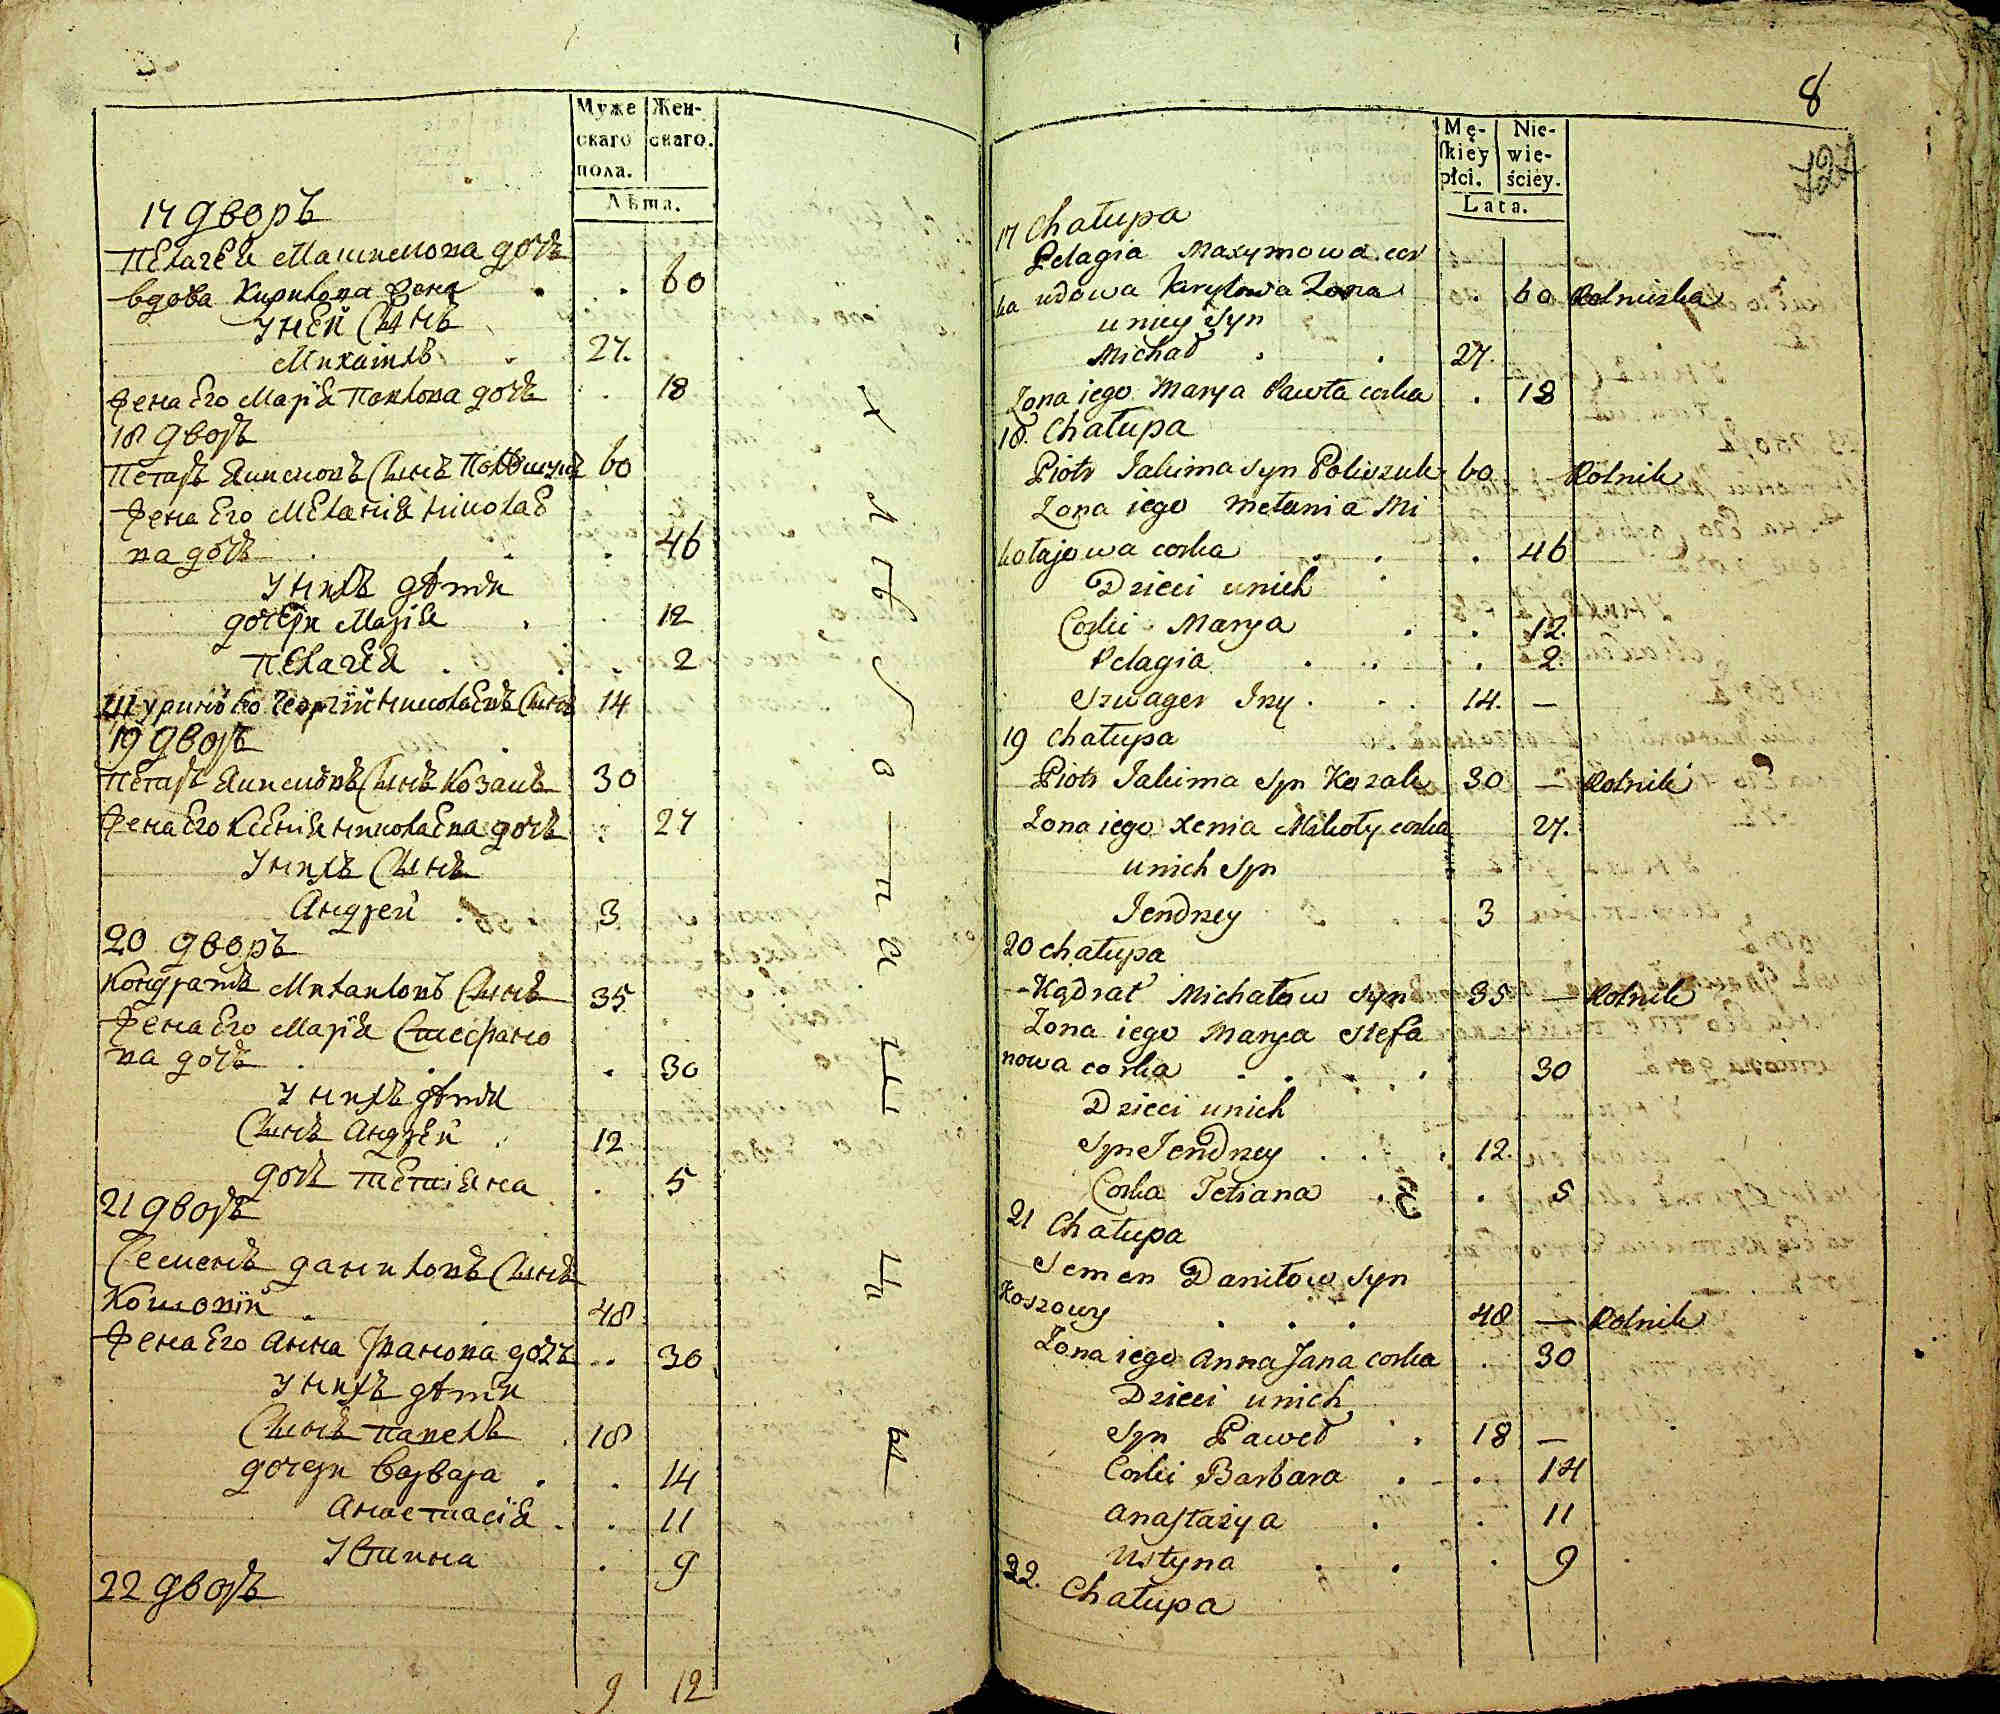 Муже
скаго
пола.
Жен-
скаго.
Лѣта.
17 дворъ
Пелагея Максимова дочь
вдова Кирилова жена . . 60
у ней сынъ
Михаилъ . 27.
жена Его Марія Павлова дочь . 18
18 дворъ
Петръ Якимовъ сынъ Полѣшукъ 60
жена Его Меланія Николае
ва дочь . . . 46
у нихъ дѣти
дочери Марія . . 12
Пелагея . . . 2
Шуринъ Его Георгій Николаевъ сынъ 14
19 дворъ
Петръ Якимовъ сынъ Козакъ 30
жена Его Ксенія Николаева дочь . 27
у нихъ сынъ
Андрей . 3
20 дворъ
Кондратъ Михаиловъ сынъ 35
жена Его Марія Стефано
ва дочь . . . 30
у нихъ дѣти
сынъ Андрей . 12
дочь Тетіяна . 5
21 дворъ
Семенъ Даниловъ сынъ
Кошовій . . 48
жена Его Анна Іванова дочь . . 30
у нихъ дѣти
сынъ Павелъ . 18
дочери Варвара . . 14
Анастасія . . 11
Устина . 9
22 дворъ
9 12
хлѣбо-пашцы
8
727
Mę-
skiey
płci.
Nie-
wie-
ściey.
Lata.
17 Chałupa
Pelagia Maxymowa cor
ka udowa Karyłowa Zona . 60 Rolniczka
u niey Syn
Michał . . 27.
Zona iego Marya Pawła corka . 18
18. Chałupa
Piotr Jakima syn Poliszuk 60 – Rolnik
Zona iego Melania Mi
kołajowa corka . . . 46
Dzieci unich
Corki Marya . . 12.
Pelagia . . . 2.
Szwager Jny . . . 14. –
19 Chałupa
Piotr Jakima Syn Kozak 30 – Rolnik
Zona iego Xenia Mikoły corka 27.
unich Syn
Jendrzey 3
20 Chałupa
Kądrat Michałow Syn 35 – Rolnik
Zona iego Marya Stefa
nowa corka . . . . 30
Dzieci unich
Syn Jendrzey . . . 12.
Corka Tetiana . . 5
21 Chałupa
Semen Daniłow Syn
Koszowy . . . 48 – Rolnik
Zona iego Anna Jana corka . 30
Dzieci unich
Syn Paweł . 18 –
Corki Barbara . . 14
Anastazya . . 11
Ustyna . . . 9
22. Chałupa